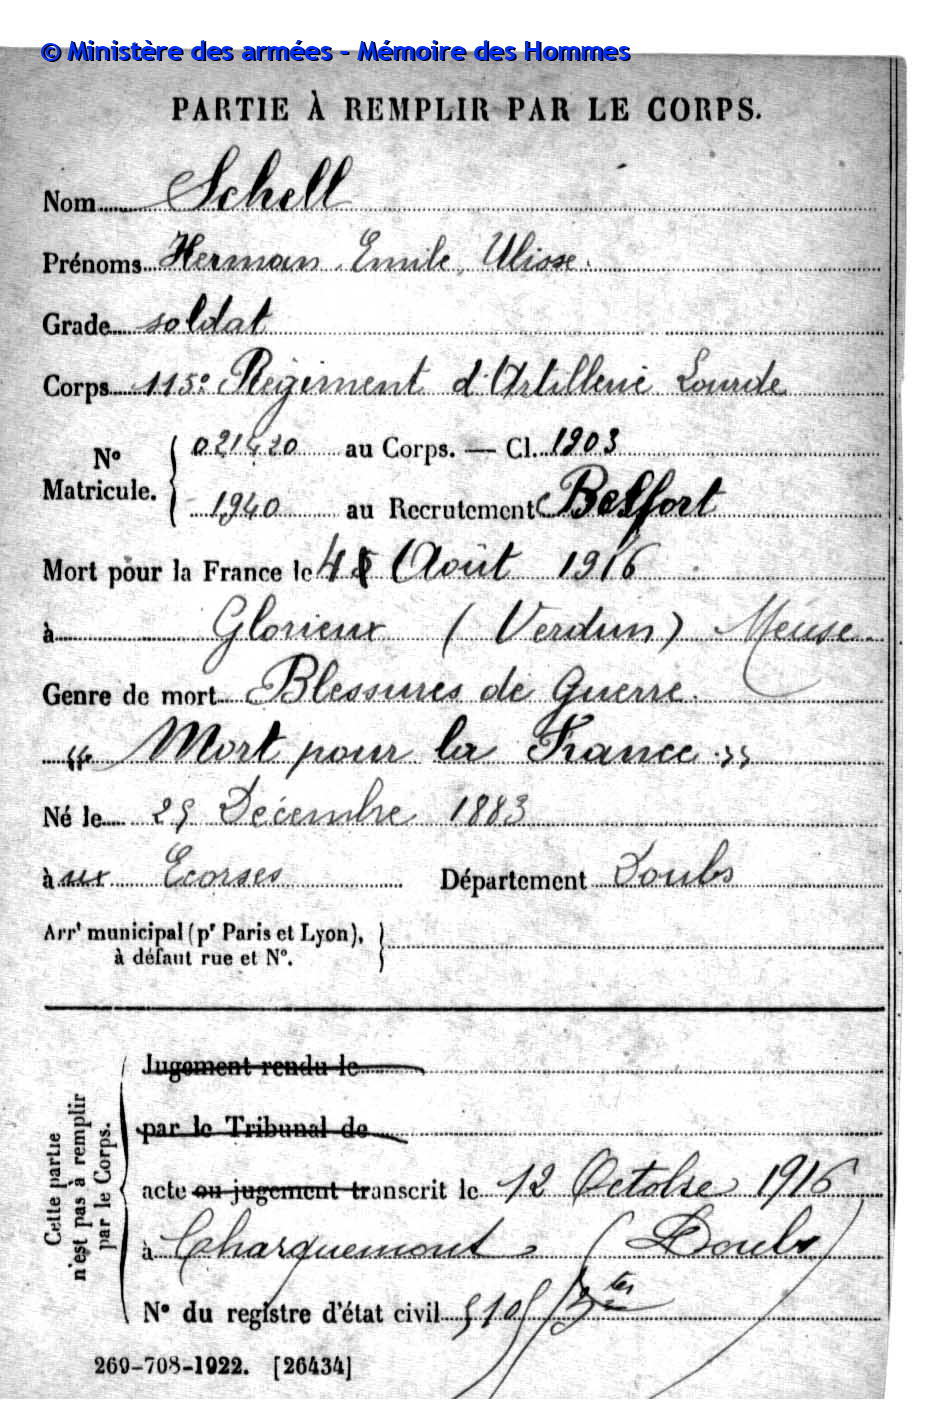 © Ministère des armées - Mémoire des Hommes
PARTIE À REMPLIR PAR LE CORPS.
Nom Schell
Prénoms Herman Emile Ulisse
Grade soldat
Corps 115e Régiment d'Artillerie Lourde
N° Matricule. { 021420 au Corps. — Cl. 1903
1940 au Recrutement Belfort
Mort pour la France le 4 Août 1916
à Glorieux (Verdun) Meuse
Genre de mort Blessures de Guerre
« Mort pour la France »
Né le 25 Décembre 1883
à ux Ecorses Département Doubs
Arrt municipal (pr Paris et Lyon),
à défaut rue et N°.
Cette partie n'est pas à remplir par le Corps.
Jugement rendu le
par le Tribunal de
acte ou jugement transcrit le 12 Octobre 1916
à Charquemont (Doubs)
N° du registre d'état civil
269-708-1922. [26434]